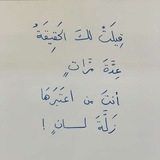 قِيلَتْ لكَ الحَقِيقَةُ
عِدَّةَ مَرَّاتٍ
أنتَ من اعتَبَرَها
زَلَّةَ لسانٍ !